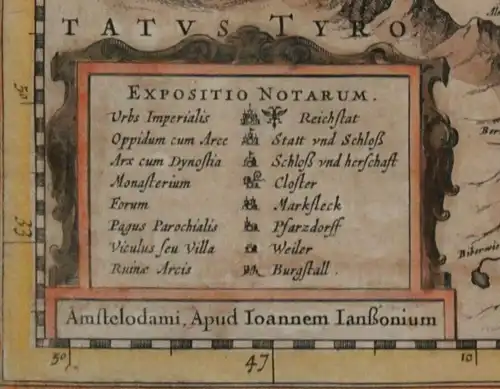 TATVS TYRO
EXPOSITIO NOTARUM.
Urbs Imperialis Reichstat
Oppidum cum Arce Statt vnd Schloß
Arx cum Dynostia Schloß vnd herschaft
Monasterium Closter
Forum Marksleck
Pagus Parochialis Pfarzdorff
Viculus seu Villa Weiler
Ruinæ Arcis Burgstall.
Amstelodami, Apud Ioannem Ianßonium
50
33
50
47
10
Biberwie